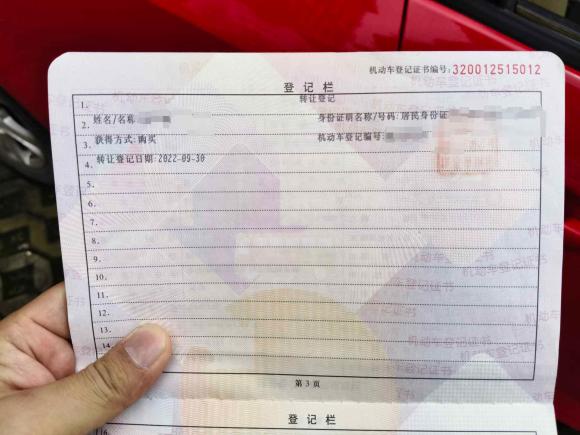 机动车登记证书编号:320012515012
登记栏
1. 转让登记
2. 姓名/名称 身份证明名称/号码:居民身份证
3. 获得方式:购买 机动车登记编号:
4. 转让登记日期:2022-09-30
5.
6.
7.
8.
9.
10.
11.
12.
13.
14
第3页
登记栏
16.